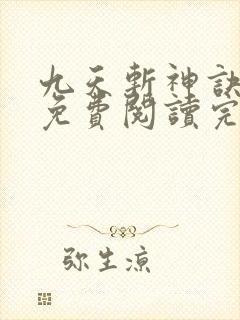 九天斬神訣
免費閱讀完
弥生凉